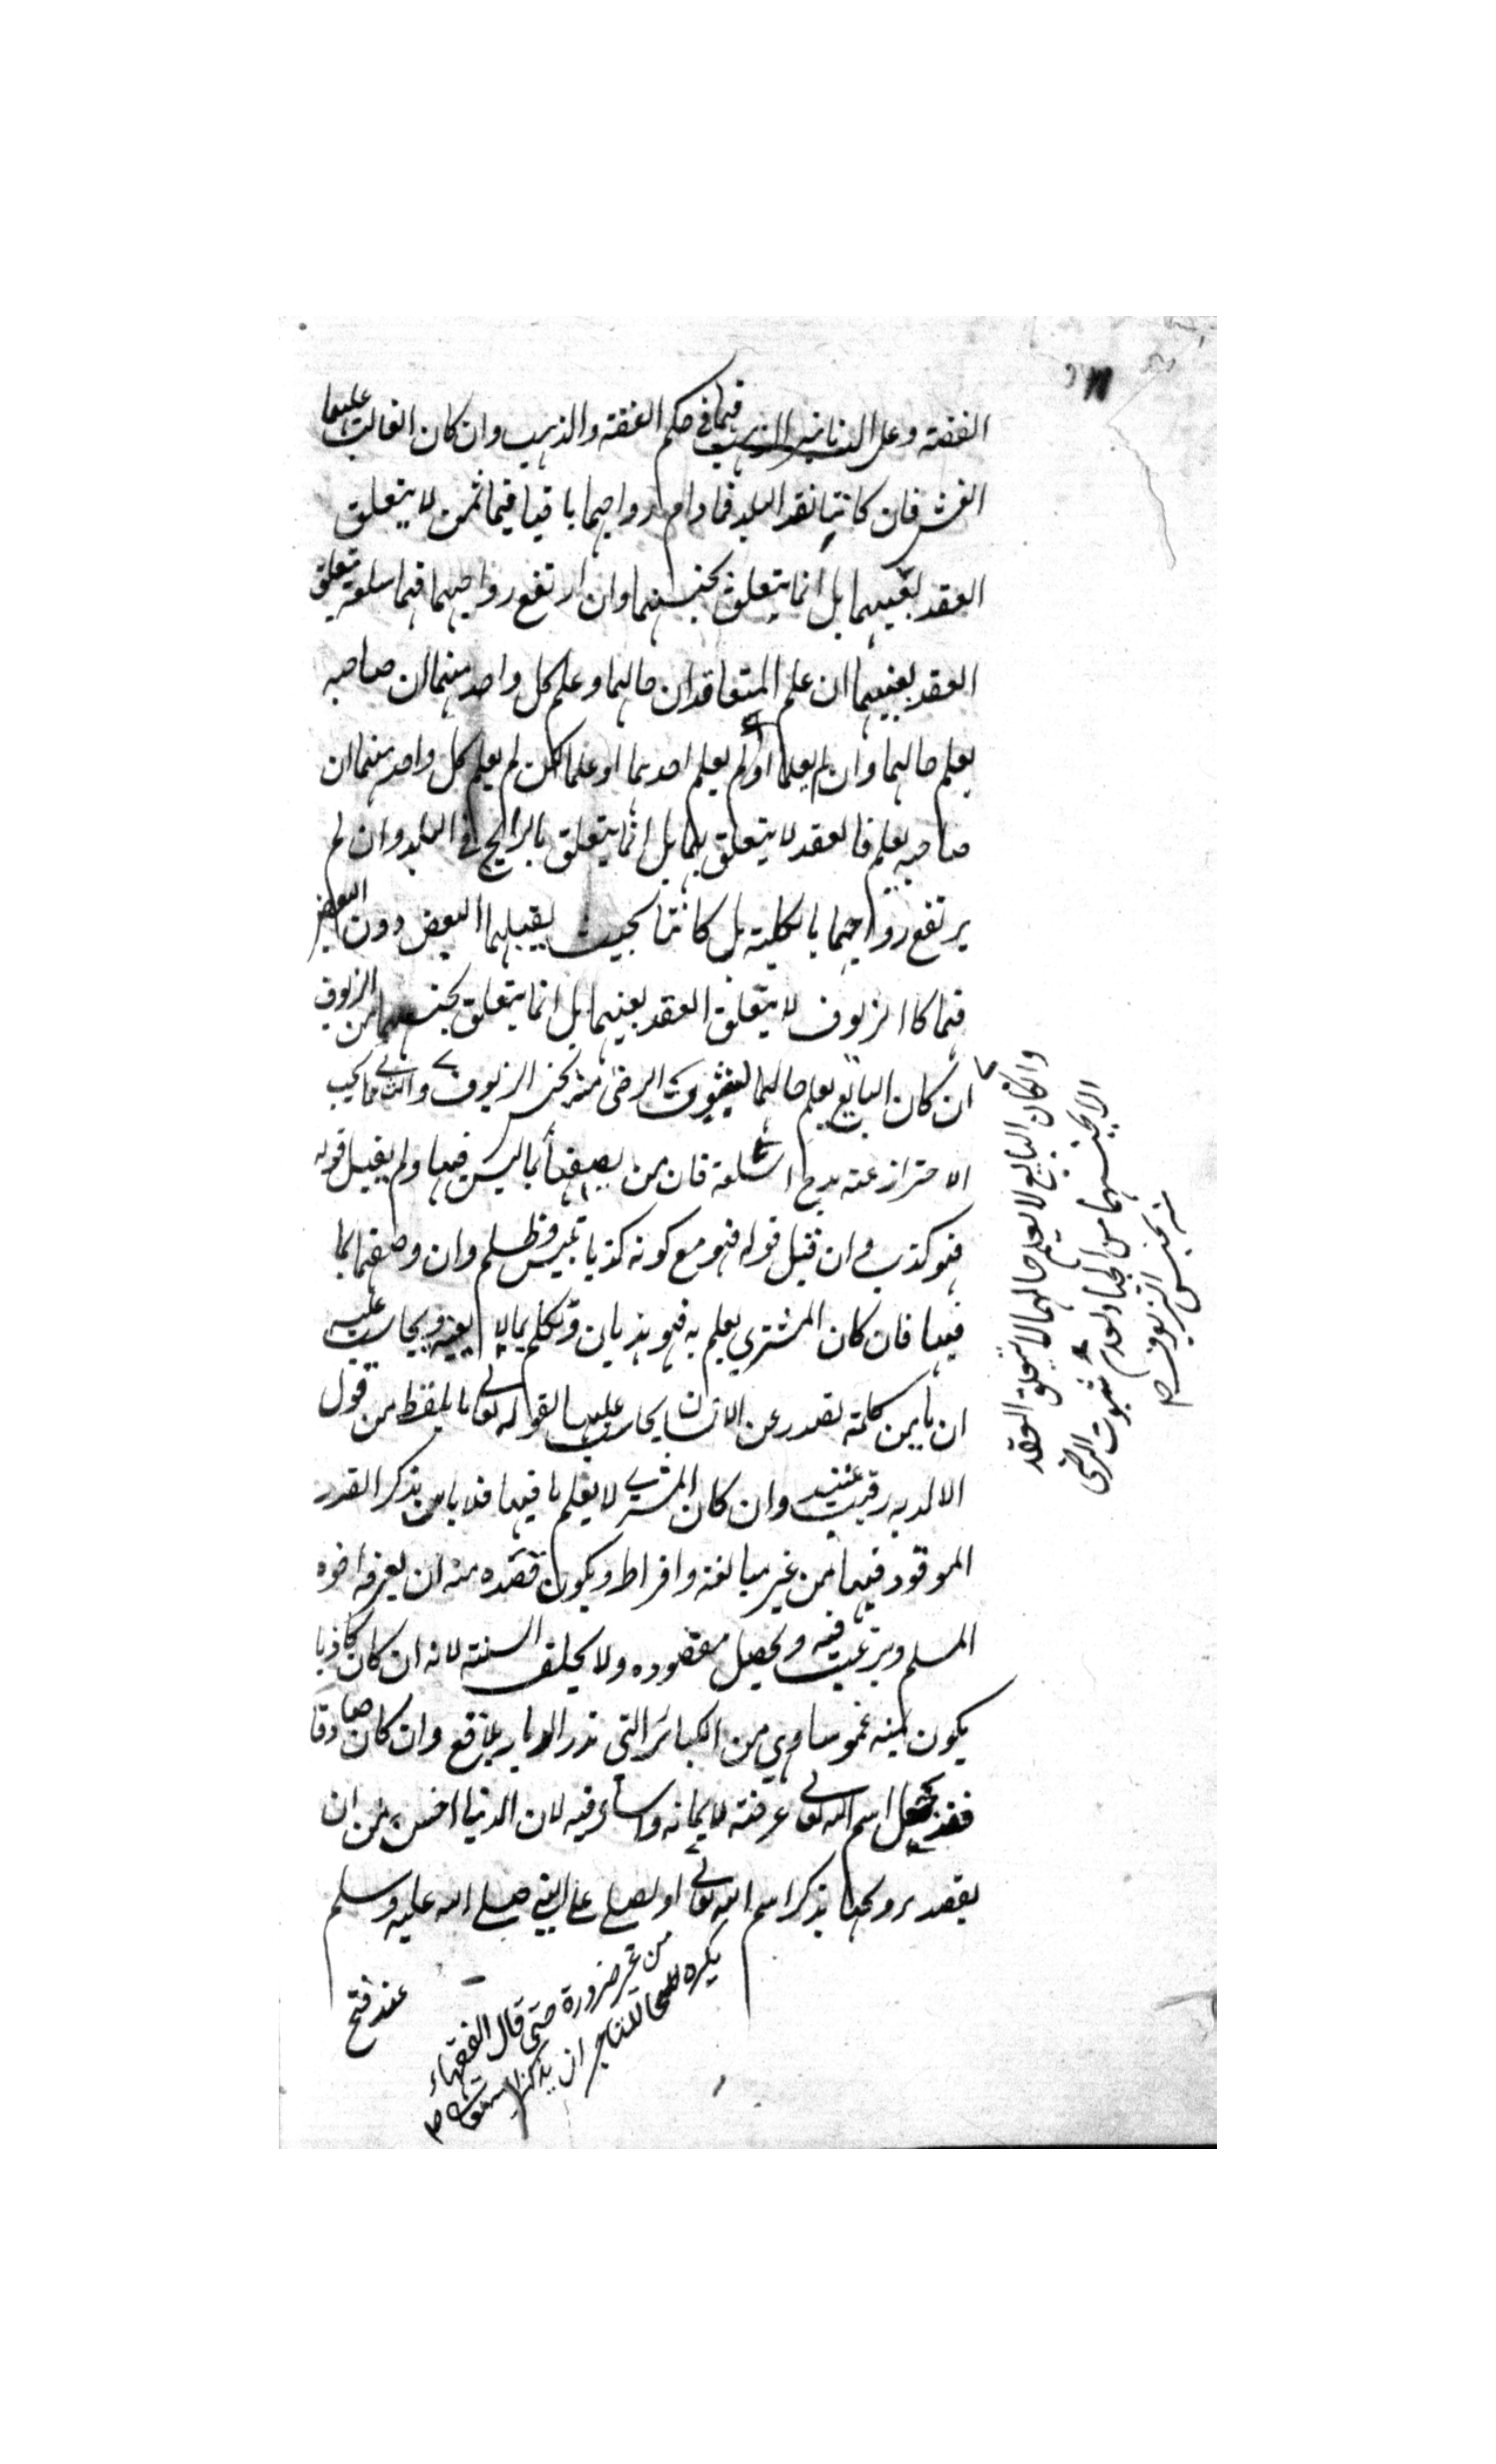 الفضة وعلى الدنانير الذهب فهما في حكم الفضة والذهب وان كان الغالب عليهما
الغش فان كانتا نقد البلد فما دام رواجهما باقيا فهما ثمن لا يتعلق
العقد بعينهما بل انما يتعلق بجنسهما وان ارتفع رواجهما فهما سلعة يتعلق
العقد بعينهما ان علم المتعاقدان حالهما وعلم كل واحد منهما ان صاحبه
يعلم حالهما وان لم يعلما او لم يعلم احدهما او علما لكن لم يعلم كل واحد منهما ان
صاحبه يعلم فالعقد لا يتعلق بهما بل انما يتعلق بالرايج في البلد وان لم
يرتفع رواجهما بالكلية بل كانتا بحيث يقبلهما البعض دون البعض
فهما كالزيوف لا يتعلق العقد بعينهما بل انما يتعلق بجنسهما من الزيوف
ان كان البايع يعلم حالهما لثبوت الرضى منه بجنس الزيوف والثاني ما يجب
الاحتراز عنه مدح السلعة فان من يصفها بما ليس فيها ولم يقبل قوله
فهو كذب وان قبل قوله فهو مع كونه كذبا تلبيس وظلم وان وصفها بما
فيها فان كان المشتري يعلم به فهو هذيان وتكلم بما لا يعنيه ويحاسب عليه
اذ ما من كلمة تصدر عن الانسان يحاسب عليها لقوله تعالى ما يلفظ من قول
الا لديه رقيب عتيد وان كان المشتري لا يعلم ما فيها فلا باس بذكر القدر
الموجود فيها من غير مبالغة وافراط ويكون قصده منه ان يعرفه اخوه
المسلم ويرغب فيه ويحصل مقصوده ولا يحلف السنة لانه ان كان كاذبا
يكون يمينه غموسا وهي من الكبائر التي تذر الديار بلاقع وان كان صادقا
فقد جعل اسم الله تعالى عرضة لايمانه واساء فيه لان الدنيا اخس من ان
يقصد ترويجها بذكر اسم الله تعالى او يصلي على النبي صلى الله عليه وسلم
من غير ضرورة حتى قال الفقهاء
يكره للتاجر ان يذكر
عند فتح
وان كان البايع لا يعلم حالهما لا يتعلق العقد
الا بجنسهما من الجياد لعدم ثبوت الرضى
منه بجنس الزيوف صح